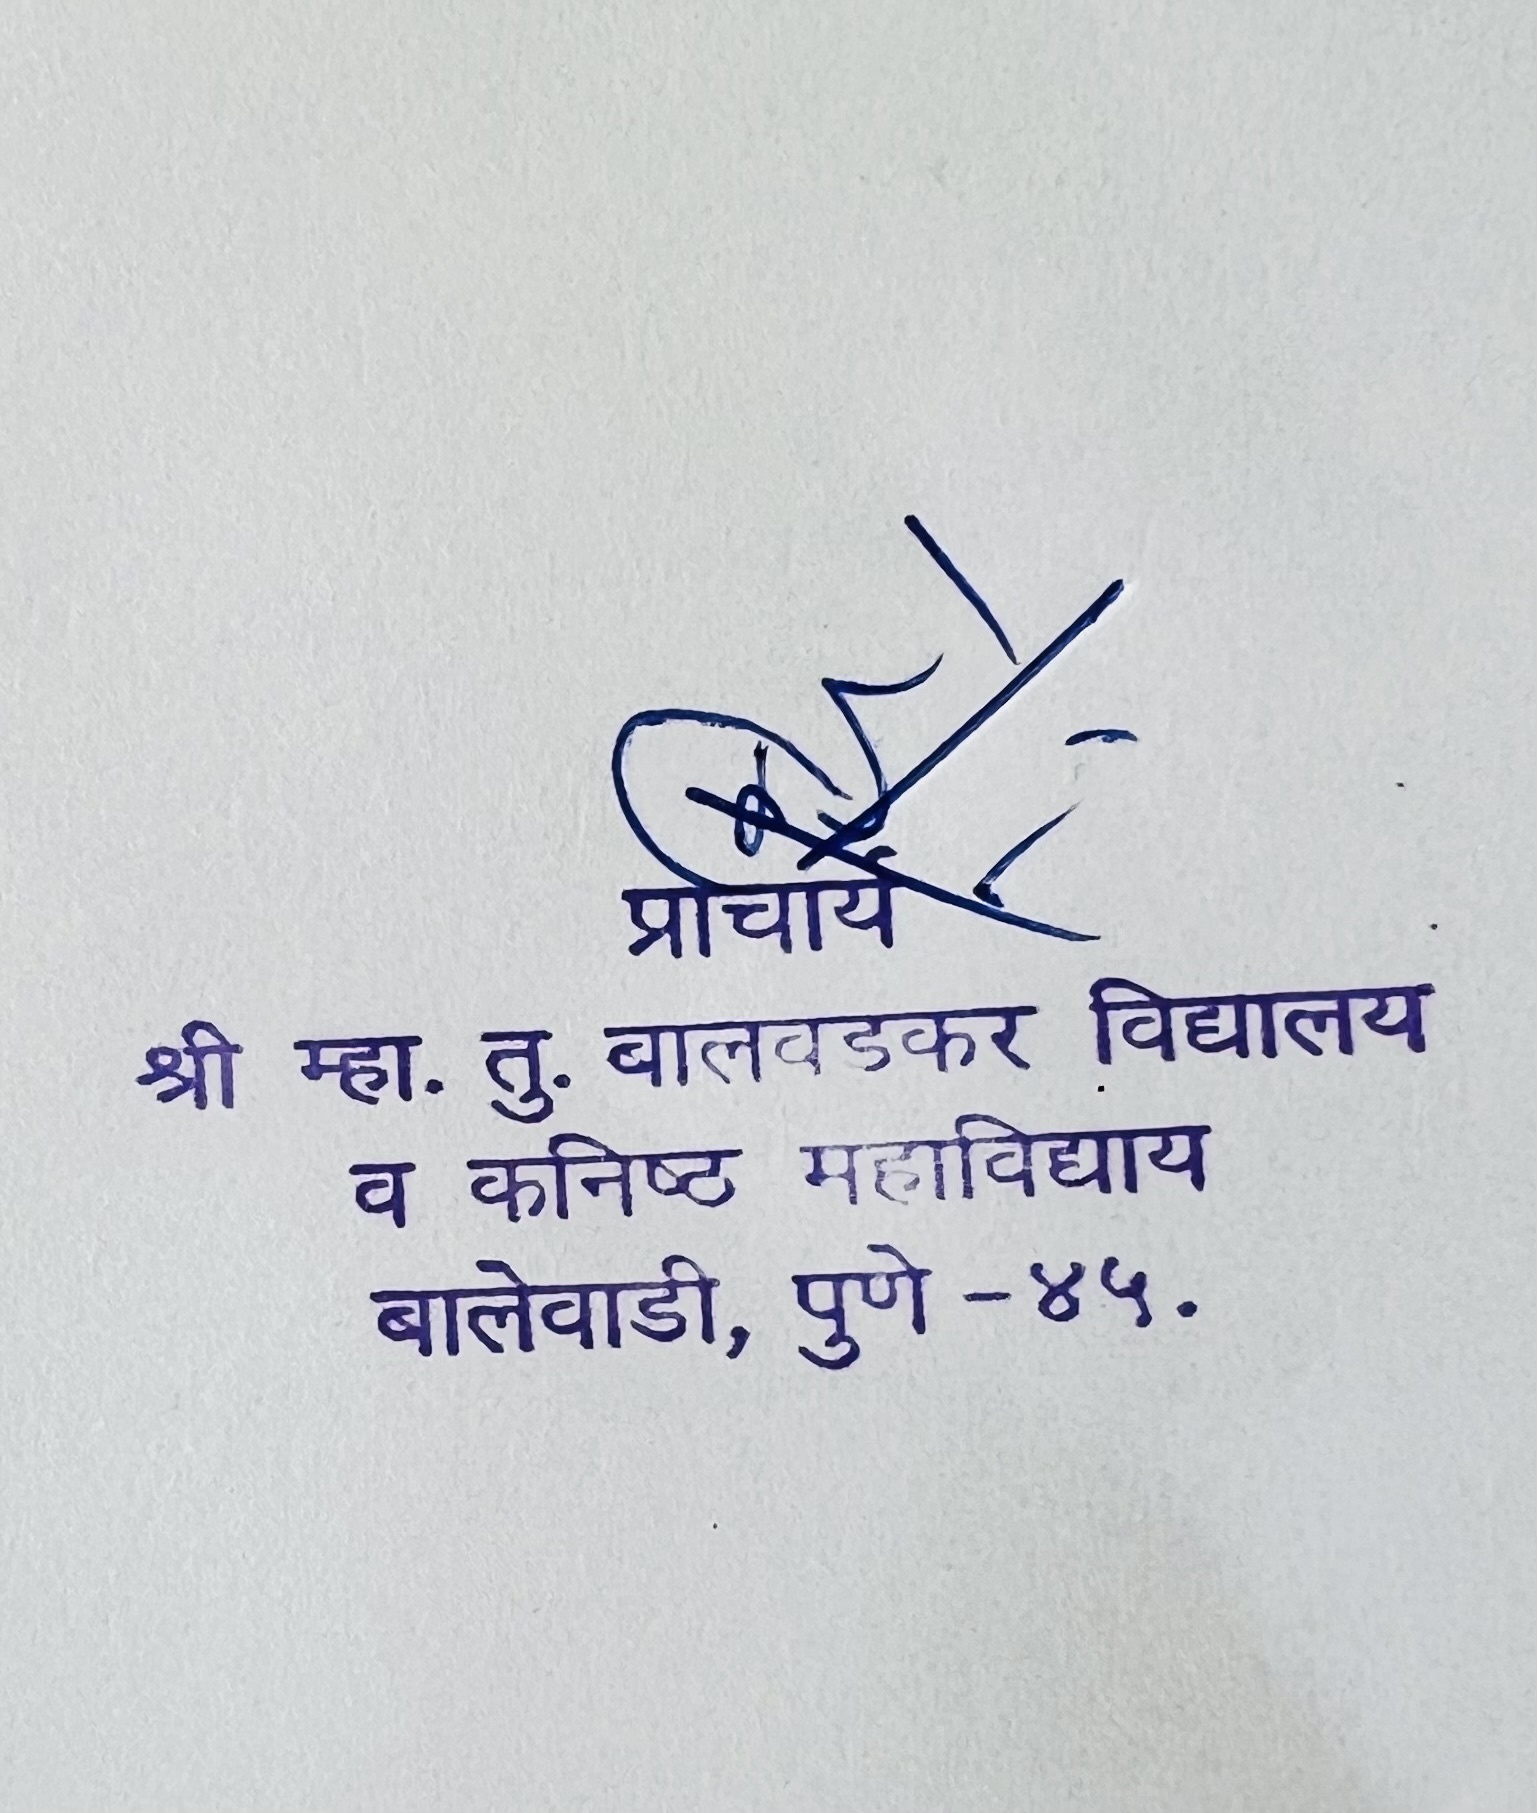 प्राचार्य
श्री म्हा. तु. बालवडकर विद्यालय
व कनिष्ठ महाविद्याय
बालेवाडी, पुणे - ४५.